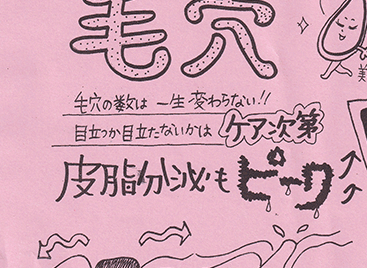 毛穴
毛穴の数は一生変わらない!!
目立つか目立たないかは ケア次第
皮脂分泌も ピーク
美